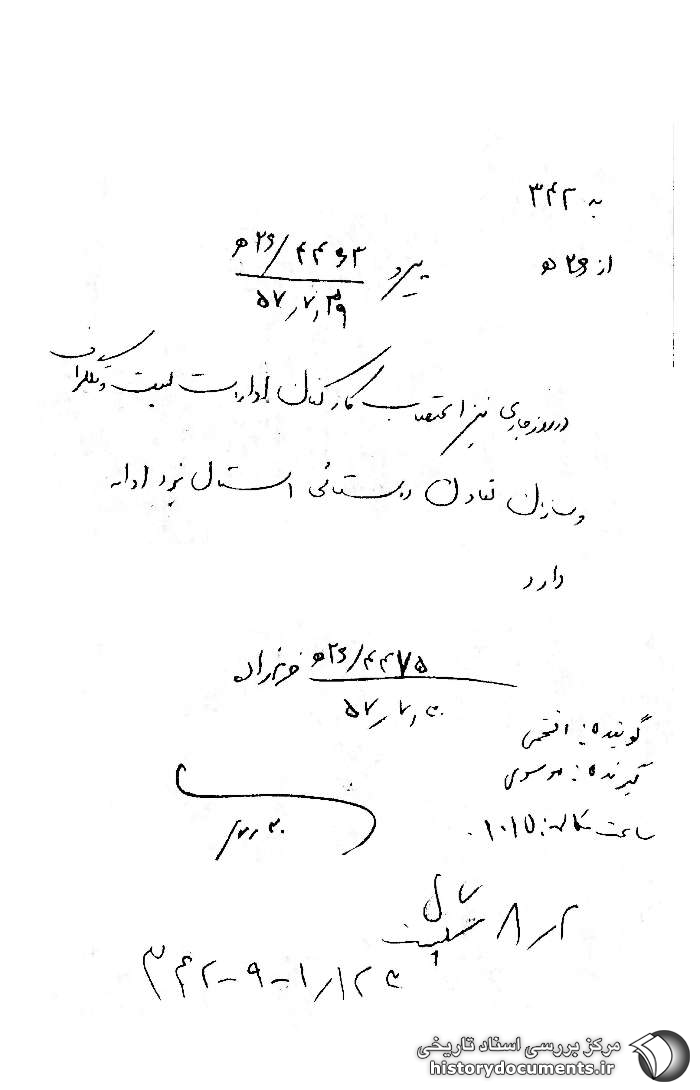 به ۳۴۲
از ۲۶ ه
پیرو ۴۴۶۳/۲۶ ه
۵۷٫۷٫۲۹
در روز جاری نیز اعتصاب کارکنان ادارات پست و تلگراف
و سازمان تعاون روستائی استان یزد ادامه
دارد
۴۴۷۵/۲۶ ه
۵۷٫۷٫۳۰
گوینده:
گیرنده: موسوی
ساعت مکالمه: ۱۰۱۵
۷٫۳۰
۸٫۲
۳۴۲-۹-۱٫۱۲
مرکز بررسی اسناد تاریخی
historydocuments.ir